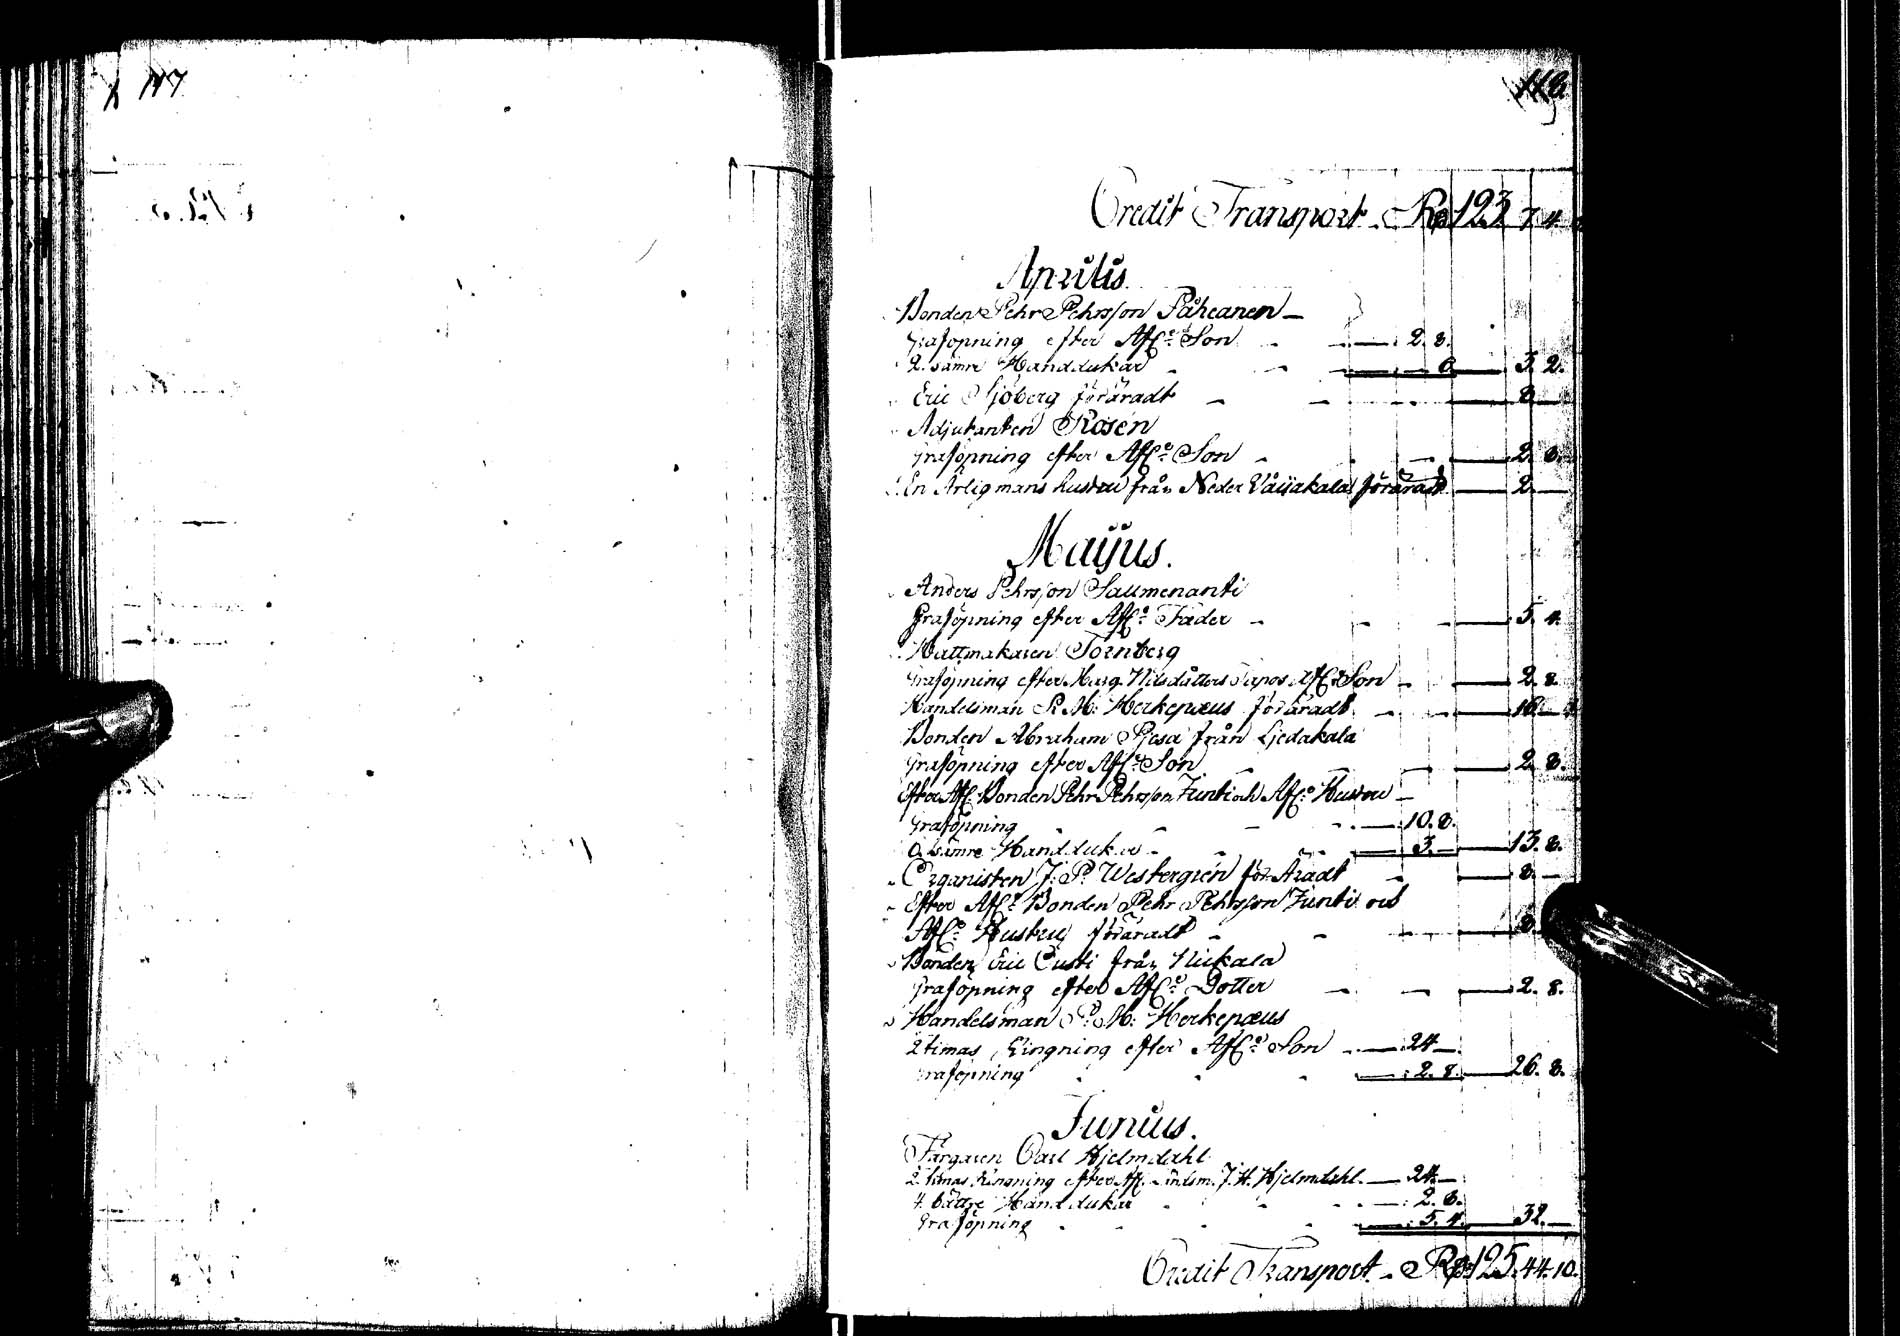 117
118
Credit Transport R:d 123. 7. 4.
Aprilis.
Bonden Pehr Pehrsson Påhcanen
Graföpning efter Afl:e Son 2. 8.
2. sämre Handdukar 6 3. 2.
Eric Sjöberg föräradt 8
Adjutanten Rosén
Graföpning efter Afl:e Son 2. 8.
En Ärlig mans hustru från Neder föräradt 2
Maijus.
Anders Pehrsson Saumenanti
Graföpning efter Afl:e Fader 5. 4.
Hattmakaren Tornberg
Graföpning efter Marg. Nilsdåtters Afl:e Son 2. 8.
Handelsman P. M: Herkepæus föräradt 16
Bonden Abraham från Liedakala
Graföpning efter Afl:e Son 2. 8.
Efter Afl: Bonden Pehr Pehrsson Junti och Afl:e Hustru
Graföpning 10. 8.
sämre Handdukar 3. 13. 8.
Organisten J: P: Westergrén föräradt 8
Efter Afl:e Bonden Pehr Pehrsson Junti och
Afl:e Hustru föräradt 8
Bonden Eric från Nickala
Graföpning efter Afl:e Dotter 2. 8.
Handelsman P: M: Herkepæus
2 timas Ringning efter Afl:e Son 24
Graföpning 2. 8. 26. 8.
Junius.
Färgaren Carl Hjelmdahl
2 timas Ringning efter Afl. J. H. Hjelmdahl 24
4 bättre Handdukar 2. 8.
Graföpning 5. 4. 32.
Credit Transport R:d 125. 44. 10.